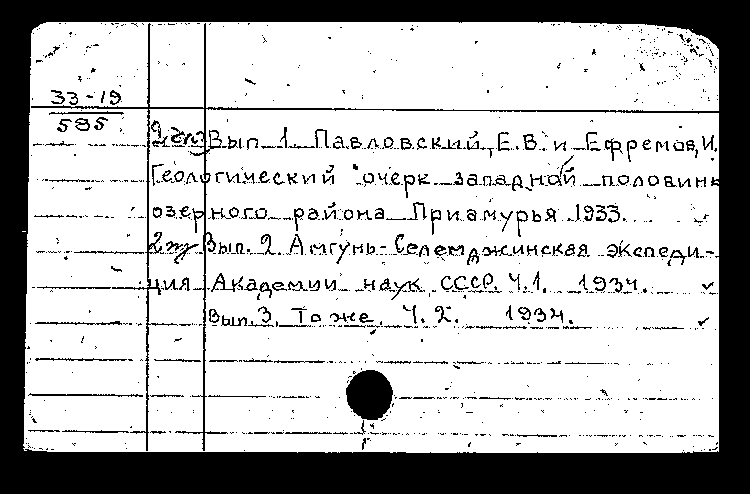 33-19
595
Вып. 1. Павловский, Е.В. и Ефремов, И.
Геологический очерк западной половины
озерного района Приамурья 1933.
2 Вып. 2. Амгунь-Селемджинская экспеди-
ция Академии наук СССР. Ч.1. 1934.
Вып. 3. То же. Ч. 2. 1934.